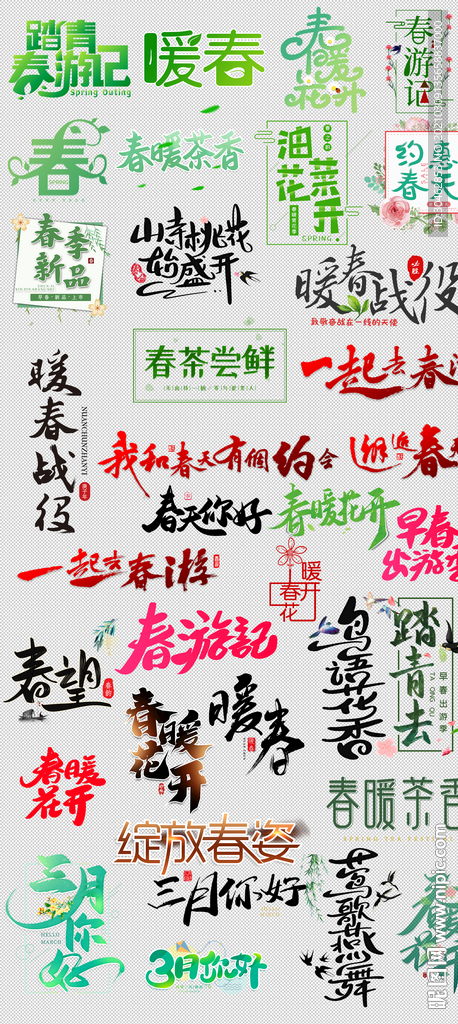 踏青
春游记
Spring Outing
暖春
春暖
花开
春游记
春
春暖茶香
油菜
花开
SPRING
约惠
春天
春季
新品
早春·新品·上市
山寺桃花
始盛开
暖春战役
必胜
致敬奋战在一线的天使
春茶尝鲜
暖春战役
NUANCHUNZHANYI
一起去春游
我和春天有個约会
邂逅春
春天你好
春暖花开
早春
出游季
一起去春游
暖开
春花
春游記
鸟语花香
踏青去
TA QING QU
早春出游季
春望
春暖
花开
暖春
春暖
花开
春暖茶香
SPRING TEA FESTIVAL
绽放春姿
三月
你好
HELLO
MARCH
三月你好
莺歌燕舞
春暖
花开
3月你好
昵图网 www.nipic.com